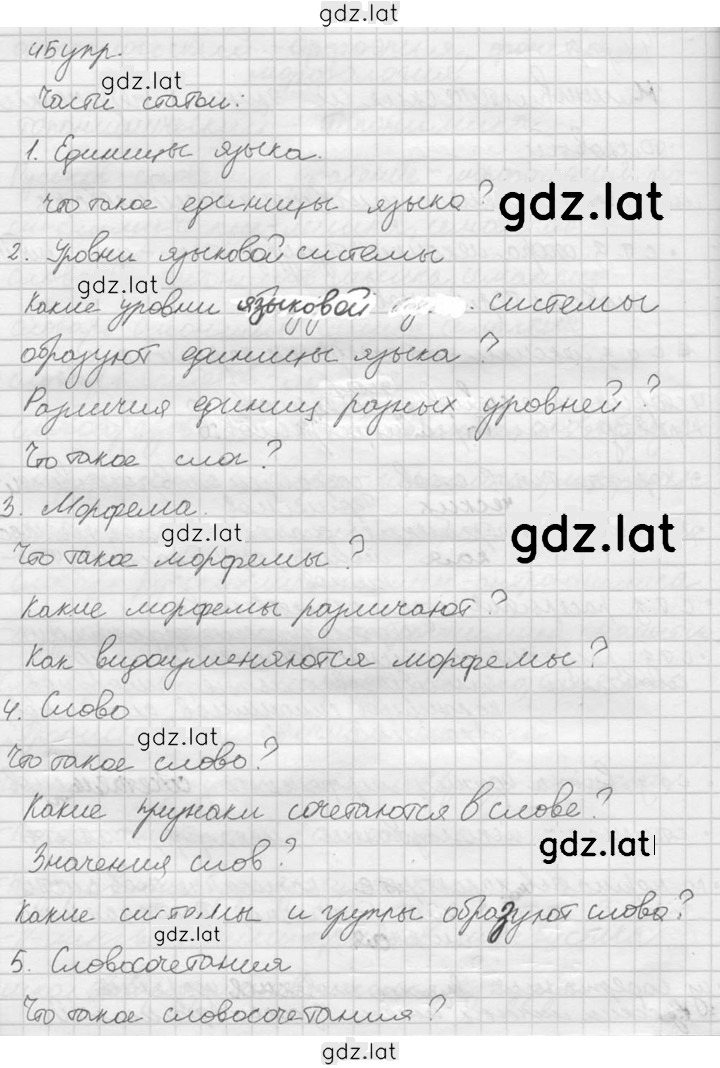 gdz.lat
45упр.
gdz.lat
Части статьи:
1. Единицы языка.
Что такое единицы языка?
gdz.lat
2. Уровни языковой системы
gdz.lat
Какие уровни языковой системы
образуют единицы языка?
Различия единиц разных уровней?
Что такое слог?
3. Морфема.
gdz.lat
gdz.lat
Что такое морфемы?
Какие морфемы различают?
Как видоизменяются морфемы?
4. Слово
gdz.lat
Что такое слово?
Какие признаки сочетаются в слове?
gdz.lat
Значения слов?
Какие системы и группы образуют слова?
gdz.lat
5. Словосочетания
Что такое словосочетания?
gdz.lat